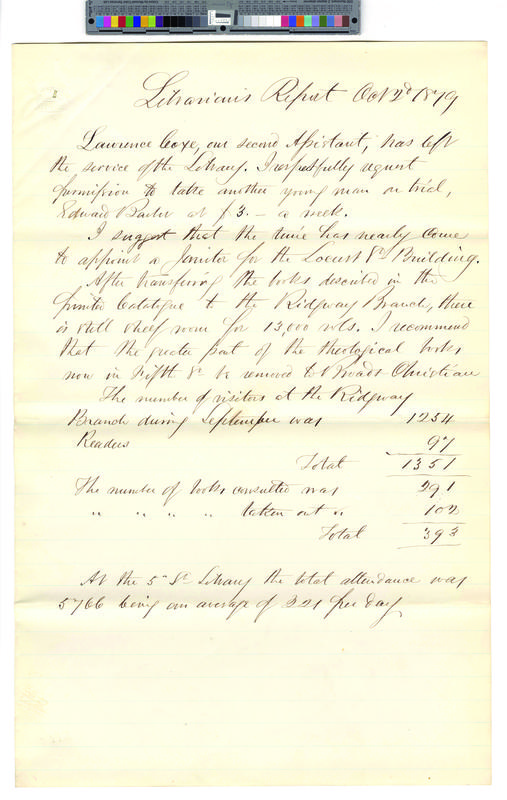 Librarian's Report Oct 2d 1879
Lawrence Coxe, our second Assistant, has left
the service of the Library. I respectfully request
permission to take another young man on trial,
Edward Baxter at $3.— a week.
I suggest that the time has nearly come
to appoint a Janitor for the Locust St Building.
After transferring the books described in the
printed Catalogue to the Ridgway Branch, there
is still shelf room for 13,000 vols. I recommend
that the greater part of the theological books
now in Fifth St be removed to Broad & Christian
The number of visitors at the Ridgway
Branch during September was 1254
Readers 97
Total 1351
The number of books consulted was 291
" " " " taken out " 102
Total 393
At the 5th St Library the total attendance was
5766 being an average of 221 per day